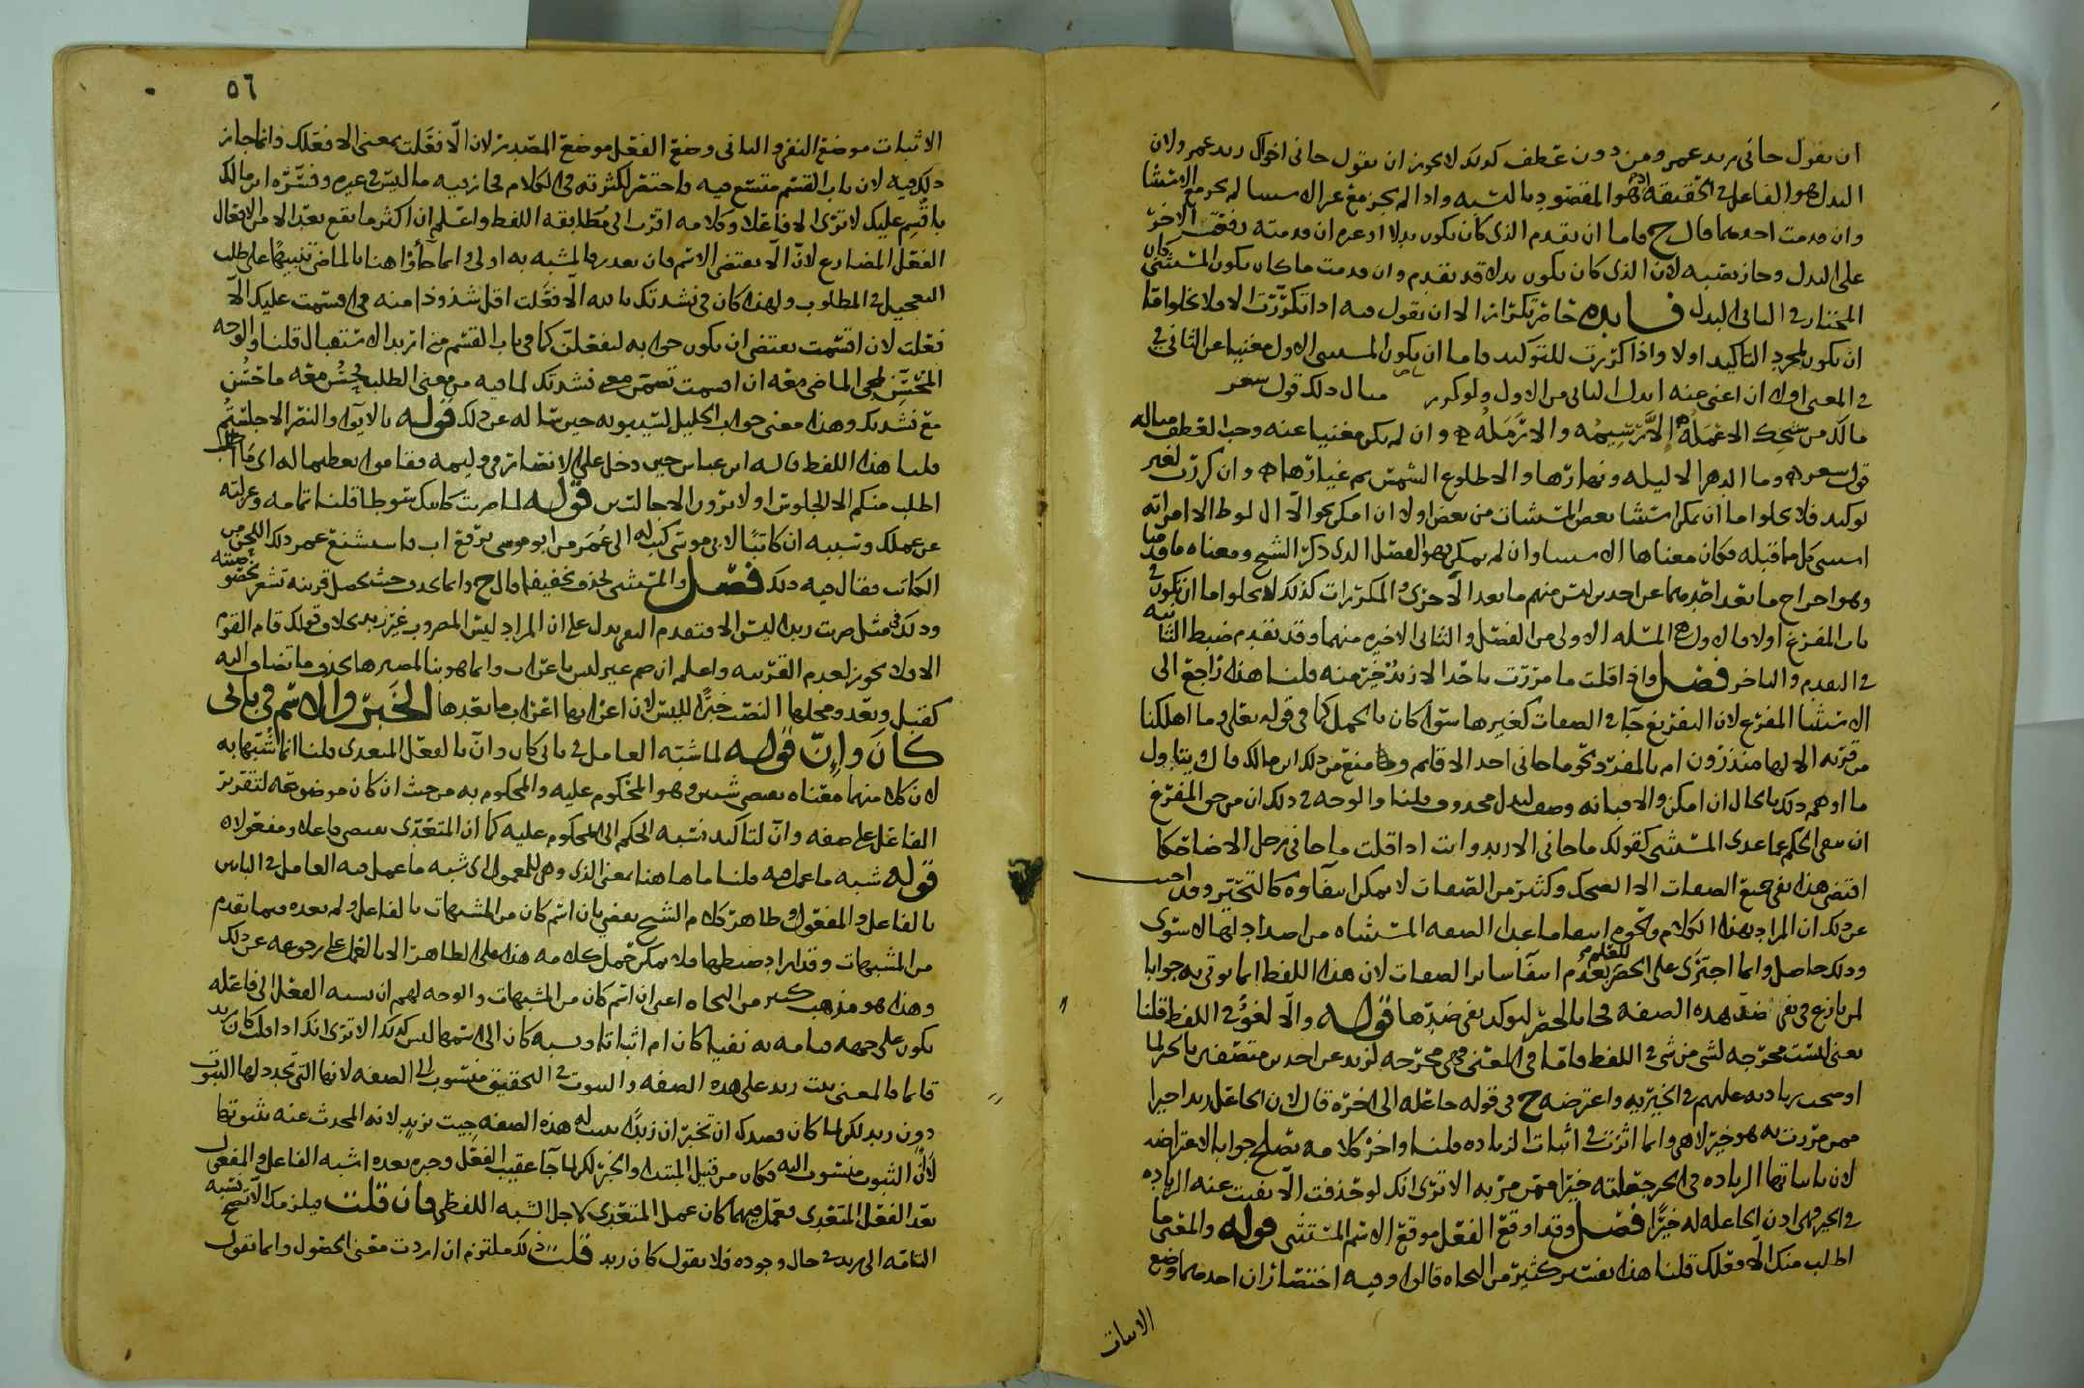 ان يقول جاني زيد عمرو ومن دون عطف كذلك لا يجوز ان يقول جاني اخوك زيد عمرو ولان
البدل هو الفاعل في الحقيقة اذ هو المقصود بالنسبه واذا لم يجز مع غير الاستثنا لم يجز مع الاستثنا
وان قدمت احدهما قال ح فاما ان يقدم الذي كان يكون بدلا او غيره ان قدمته رفعت الاخر
على البدل وجاز نصبه لان الذي كان يكون بدله قد تقدم وان قدمت ما كان يكون المستثنى كان
المختار في الثاني البدل فايده خاض تكرار الا ان يقول فيه اذا تكررت الا فلا يخلوا اما
ان يكون لمجرد التاكيد اولا واذا كررت للتوكيد فاما ان يكون المستثنى الاول مغنيا عن الثاني في
في المعنى اولا ان اغنى عنه ابدل الثاني من الاول ولو كرر مثال ذلك قول شعر
مالك من شيخك الا عمله الا رسيمه والا رمله وان لم يكن مغنيا عنه وجب العطف مثاله
قول شعر وما الدهر الا ليله ونهارها والا طلوع الشمس ثم غيارها وان كررت لغير
توكيد فلا يخلوا اما ان يمكن استثنا بعض المستثنات من بعض اولا ان امكن نحو الا ال لوط الا امراته
استثني كل مما قبله فكان معناها الاستثنا وان لم يمكن فهو الفصل الذي ذكر الشيخ ومعناه ما قدمنا
وهو اخراج ما بعد احدهما عن احد ليس منهم ما بعد الاخرى والمكررات كذلك لا يخلوا اما ان يكون في
باب المفرغ اولا فالاول هي المسله الاولى من الفصل والثاني الاخيره منهما وقد تقدم ضبط الثانيه
في التقدم والتاخر فصل واذا قلت ما مررت باحد الا زيد خير منه قلنا هذا راجع الى
الاستثنا المفرغ لان التفريغ جا في الصفات كغيرها سوا كان بالجمل كما في قوله تعلى وما اهلكنا
من قريه الا لها منذرون ام بالمفرد نحو ما جاني احد الا قايم وقد منع من ذلك ابن مالك قال ويتاول
ما اوهم ذلك بالحال ان امكن والا فبانه وصف لبدل محذوف قلنا والوجه في ذلك ان من حق المفرغ
ان ينفي الحكم عما عدى المستثنى كقولك ما جاني الا زيد وانت اذا قلت ما جاني رجل الا ضاحكا
اقتضى هذا نفي جميع الصفات الا الضحك وكثير من الصفات لا يمكن انتفاؤه كالتحيز وقد اجيب
عن ذلك ان المراد بهذا الكلام ونحوه انتفا ما عدا الصفه المستثناه من اضدادها لا سوى
وذلك حاصل وانما اجتزى على الحصر للعلم بعدم انتفا ساير الصفات لان هذا اللفظ انما يوتى به جوابا
لمن نازع في نفي ضد هذه الصفه فجا بالحصر ليوكد نفي ضدها قوله والا لغو في اللفظ قلنا
يعني ليست مخرجه لشي من شي في اللفظ فاما في المعنى فهي مخرجه لزيد عن احد من متصفين بالخير لما
اوضحت زيادته عليهم في الخيريه واعترضه ح في قوله جاعله الى اخره قال لان الجاعل زيدا خيرا
ممن مررت به هو خير لا هي وانما اثرت في اثبات الزياده قلنا واخر كلامه يصلح جوابا لاعتراضه
لان باثباتها الزياده في الخير جعلته خيرا ممن مر به الا ترى انك لو حذفت الا نفيت عنه الزياده
في الخير فهي اذن الجاعله له خيرا فصل وقد اوقع الفعل موقع الاسم المستثنى قوله والمعنى ما
اطلب منك الا فعلك قلنا هذا تفسير كثير من النحاه قالوا وفيه اختصار ان احدهما وضع
الاثبات
٥٦
الاثبات موضع النفي والثاني وضع الفعل موضع المصدر لان الا فعلت بمعنى الا فعلك وانما جاز
ذلك فيه لان باب القسم متسع فيه فاختصر لكثرته في الكلام فجاز فيه ما ليس في غيره وفسره ابن مالك
باقسم عليك لا ترى الا فاعلا وكلامه اقرب الى مطابقه اللفظ واعلم ان اكثر ما يقع بعد الا من الافعال
الفعل المضارع لان الا يقتضي الاسم فان بعدها المشبه به اولى وانما جاؤا هنا بالماضي تنبيها على طلب
التعجيل في المطلوب ولهذا كان في نشدتك بالله الا فعلت اقل شذوذا منه في اقسمت عليك الا
فعلت لان اقسمت يقتضي ان يكون جوابه لتفعلن كما في باب القسم من ان يريد الاستقبال قلنا والوجه
المحسن لمجي الماضي معه ان اقسمت تضمن معنى نشدتك لما فيه من معنى الطلب فحسن معه ما حسن
مع نشدتك وهذا معنى جواب الخليل لسيبويه حين ساله عن ذلك قوله بالايوا والنصر الا جلستم
قلنا هذا اللفظ قاله ابن عباس حين دخل على الانصار في وليمه فقاموا تعظيما له اي ما
اطلب منكم الا الجلوس اولا ترون الا جالسين قوله لما ضربت كاتبك سوطا قلنا تمامه وعزلته
عن عملك وسببه ان كاتبا لابي موسى كتب له الى عمر من ابو موسى برفع اب فاستشنع عمر ذلك اللحن من
الكاتب فقال فيه ذلك فصل والمستثنى يحذف تخفيفا قال ح وانما يحذف حيث تحصل قرينه تشعر بخصوصيته
وذلك في مثل ضربت زيدا ليس الا فتقدم الفعل يدل على ان المراد ليس المضروب غير زيد بخلاف قولك قام القوم
الا ولا يجوز لعدم القرينه واعلم ان ضم غير ليس باعراب وانما هو بنا لمصيرها بحذف ما تضاف اليه
كقبل وبعد ومحلها النصب خبرا لليس لان اعرابها اعراب ما بعدها الخبر والاسم في بابي
كان وان قوله لما شبه العامل في بابي كان وان بالفعل المتعدي قلنا انما اشبها به
لان كلا منهما معناه يقتضي شيين وهو المحكوم عليه والمحكوم به من حيث ان كان موضوعه لتقرير
الفاعل على صفه وان لتاكيد نسبه الحكم الى المحكوم عليه كما ان المتعدي يقتضي فاعلا ومفعولا
قوله شبه ما عمل فيه قلنا ما هاهنا بمعنى الذي وهي للمعمول اي شبه ما عمل فيه العامل في البابين
بالفاعل والمفعول وظاهر كلام الشيخ يقضي بان اسم كان من المشبهات بالفاعل ولم يعده فيما تقدم
من المشبهات وقد اراد ضبطها فلا يمكن حمل كلامه هذا على الظاهر الا بالعمل على رجوعه عن ذلك
وهذا هو مذهب كثير من النحاه اعني ان اسم كان من المشبهات والوجه لهم ان نسبه الفعل الى فاعله
يكون على جهه قيامه به نفيا كان ام اثباتا ونسبه كان الى اسمها ليس كذلك الا ترى انك اذا قلت كان زيد
قايما فالمعنى ثبت زيد على هذه الصفه والثبوت في التحقيق منسوب الى الصفه لانها التي تجدد لها الثبوت
دون زيد لكن لما كان قصدك ان تخبر ان زيدا ثبت له هذه الصفه جيت بزيد لانه المحدث عنه بثبوتها
لان الثبوت منسوب اليه فكان من قبيل المبتدا والخبر لكن لما جا عقيب الفعل وخبره بعده اشبه الفاعل والمفعول
بعد الفعل المتعدي فعمل فيهما كان عمل المتعدي لاجل الشبه اللفظي فان قلت فيلزمك الا تصح نسبه
التامه الى زيد في حال وجوده فلا يقول كان زيد قلت ذلك ملتزم ان اردت معنى الحصول وانما تقول